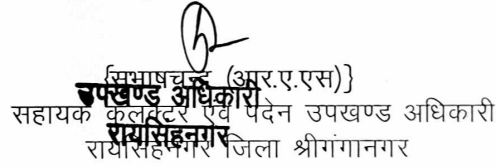 {सुभाषचन्द्र (आर.ए.एस)}
उपखण्ड अधिकारी
सहायक कलेक्टर एवं पदेन उपखण्ड अधिकारी
रायसिंहनगर
रायसिंहनगर जिला श्रीगंगानगर